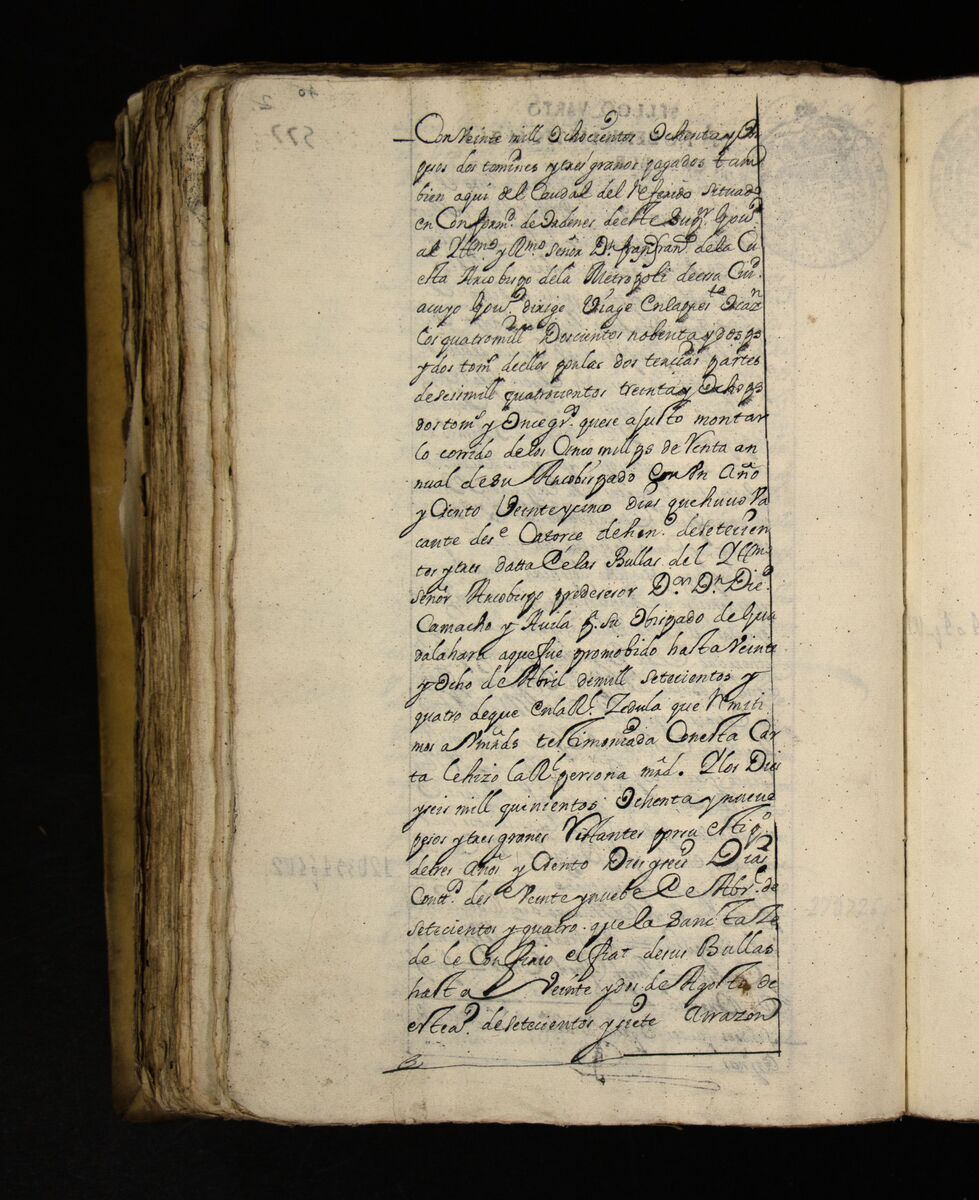 Con veinte mill ochocientos ochenta y Un
pesos dos tomines y tres granos pagados tam
bien aqui del Caudal del referido situado
en Conformd. de ordenes de este Supor. Govno.
al Yllmo. y Rmo. señor Dn. franco. de la Cu
esta Arcobispo dela Metropoli de essa Ciud.
acuyo Govno. dirige Viage en la pressta. ocazn.
Los quatro mill Doscientos nobenta y dos ps
y dos toms. dellos por las dos tercias partes
de seis mill quatrocientos treinta y ocho ps
dos toms. y Once grs. que se ajusto montar
lo corrido de los Cinco mill ps de Renta an
nual de su Arcobispado con Un Año
y Ciento Veinte y cinco dias que huvo Va
cante desde Catorce de hene. de setecien
tos y tres data de las Bullas del Yllmo.
señor Arcobispo predecesor Dor. Dn. Diego
Camacho y Avila pa. su Obispado de Gua
dalahara aque fue promobido hasta Veinte
y Ocho de Abril de mill setecientos y
quatro de que en la Rl. Zedula que Remiti
mos a Vmds. testimoniada Con esta Car
ta le hizo la Rl. persona mrd. Y los Dies
y seis mill quinientos Ochenta y nueve
pesos y tres granos Restantes por su estipo.
de tres Años y Ciento Dies y seis Dias
Contos. desde Veinte y nuebe de Abrl. de
setecientos y quatro que la Santa Se
de le Confirio el fiat de sus Bullas
hasta Veinte y dos de Agosto de
este ao. de setecientos y siete Arrazon